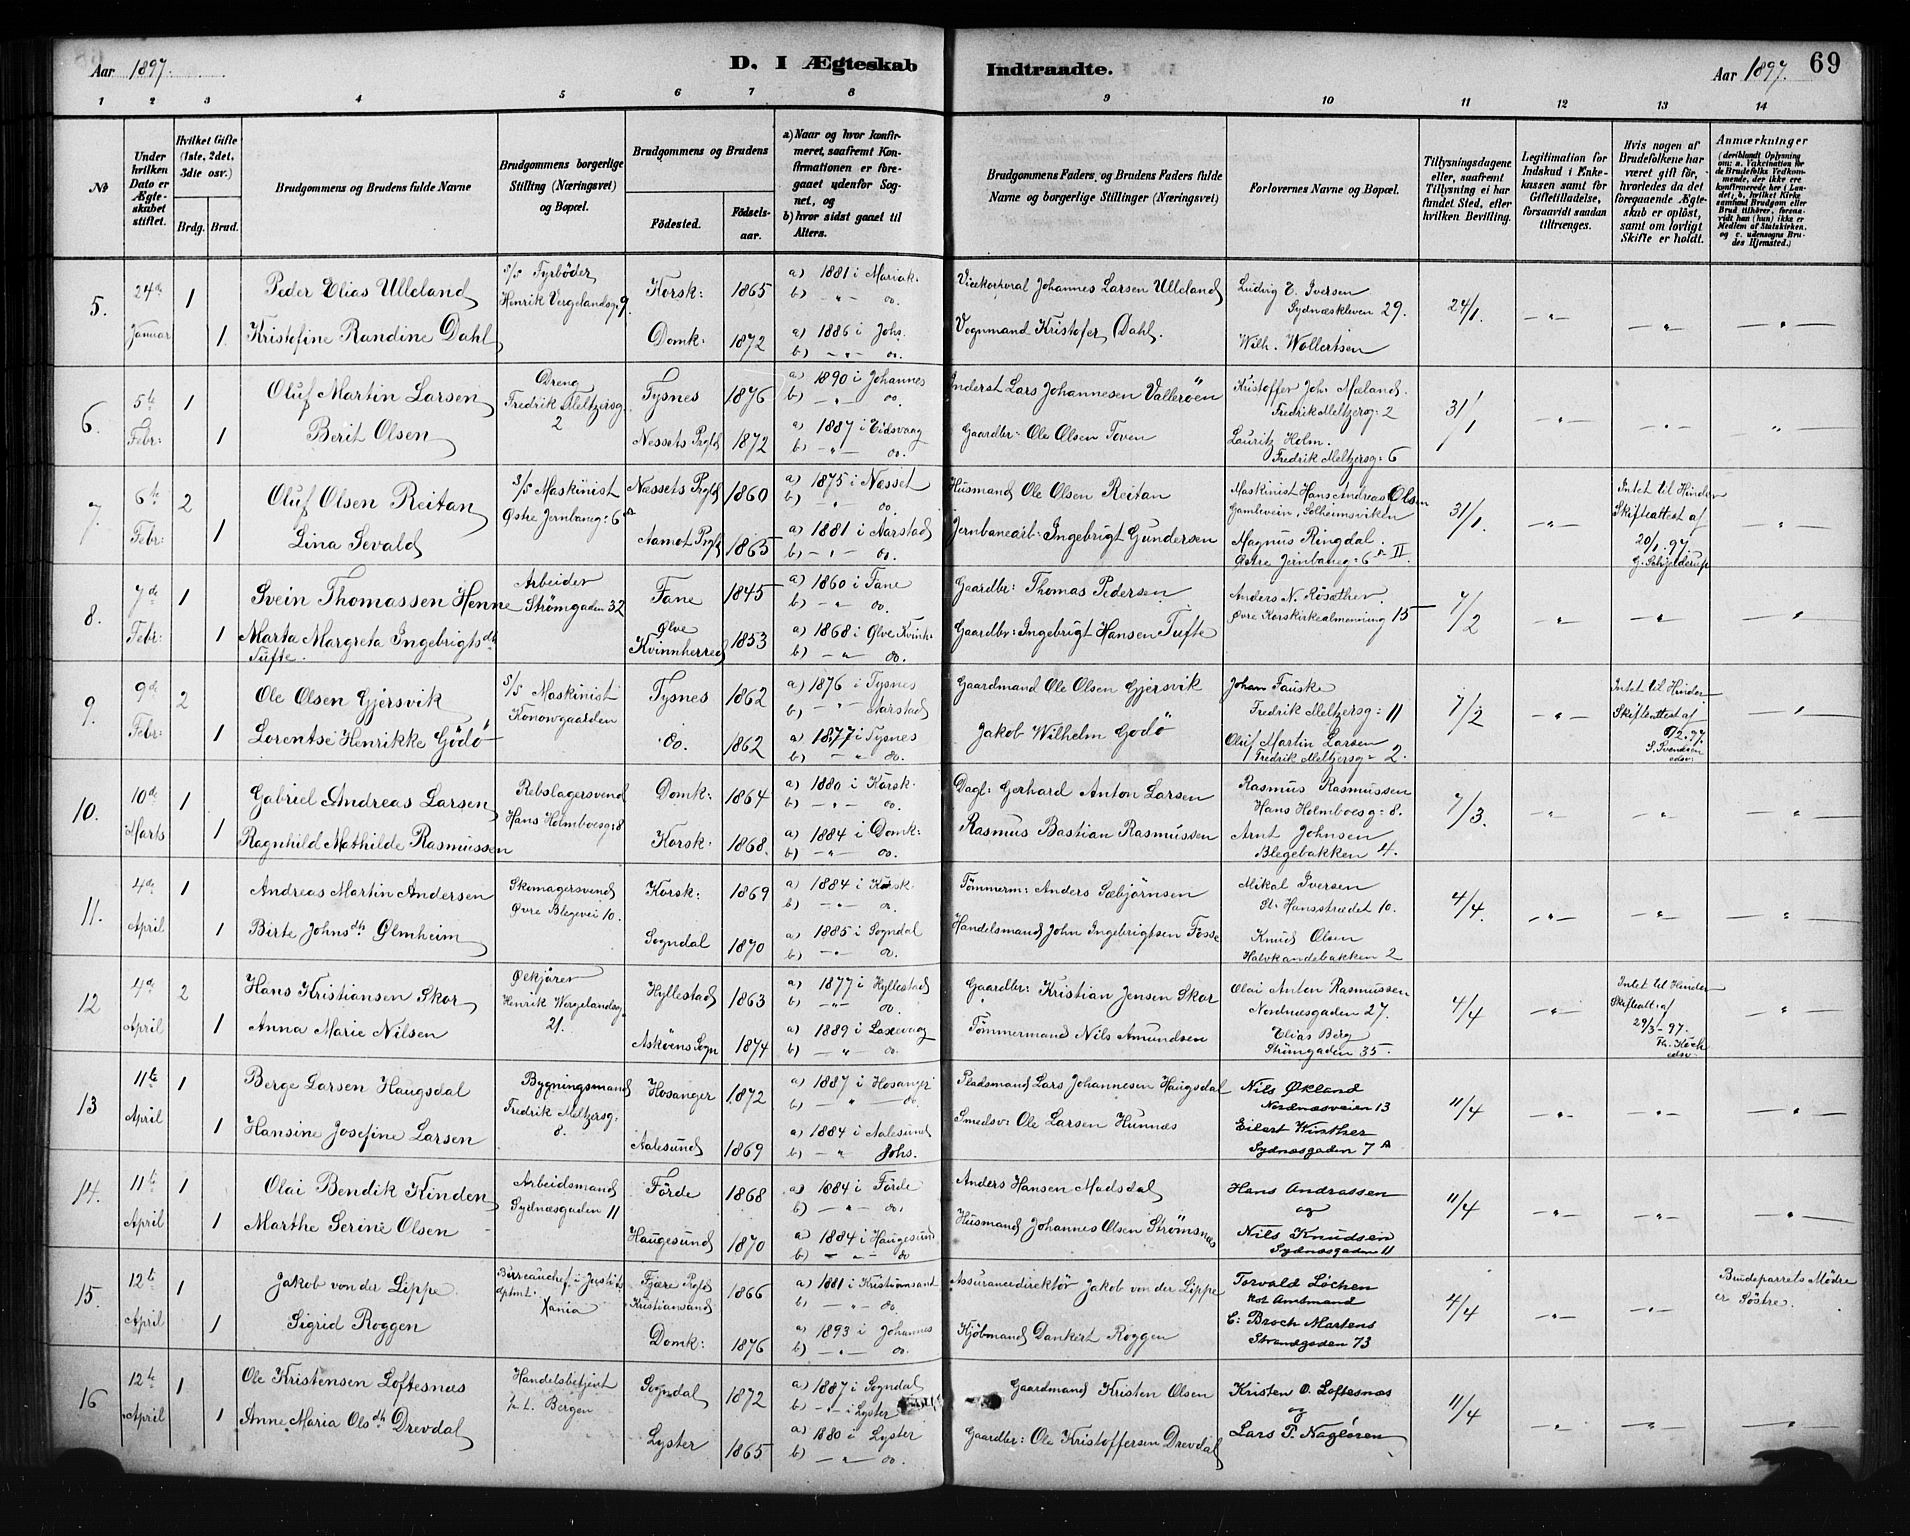 Aar 1897.
D. I Ægteskab Indtraadte.
Aar 1897.
69
1 2 3 4 5 6 7 8 9 10 11 12 13 14
No
Under hvilken Dato er Ægteskabet stiftet.
Hvilket Gifte (1ste, 2det, 3die osv.)
Brdg. Brud.
Brudgommens og Brudens fulde Navne
Brudgommens borgerlige Stilling (Næringsvei) og Bopæl.
Brudgommens og Brudens
Fødested.
Fødselsaar.
a) Naar og hvor konfirmeret, saafremt Konfirmationen er foregaaet udenfor Sognet, og
b) hvor sidst gaaet til Alters.
Brudgommens Faders, og Brudens Faders fulde Navne og borgerlige Stillinger (Næringsvei)
Forlovernes Navne og Bopæl.
Tillysningsdagene eller, saafremt Tillysning ei har fundet Sted, efter hvilken Bevilling.
Legitimation for Indskud i Enkekassen samt for Giftetilladelse, forsaavidt saadan tiltrænges.
Hvis nogen af Brudefolkene har været gift før, hvorledes da det foregaaende Ægteskab er opløst, samt om lovligt Skifte er holdt.
Anmærkninger (deriblandt Oplysning om: a. Vakcination for de Brudefolks Vedkommende, der ikke ere konfirmerede her i Landet; b. hvilket Kirkesamfund Brudgom eller Brud tilhører, forsaavidt han (hun) ikke er Medlem af Statskirken, og c. udensogns Brudes Hjemsted.)
5. 24de Januar 1 Peder Elias Ulleland S/S Fyrbøder Henrik Vergelandsg: 9. Korsk: 1865 a) 1881 i Mariak. b) do. Vicekorporal Johannes Larsen Ulleland Ludvig E. Iversen Sydnæskleven 29. 24/1.
1. Kristofine Randine Dahl Domk: 1872 a) 1886 i Johs. b) do. Vognmand Kristofer Dahl. Wilh. Wollertsen
6. 5te Febr: 1 Oluf Martin Larsen Dreng Fredrik Meltzersg: 2 Tysnes 1876 a) 1890 i Johannes b) do. Inderst Lars Johannesen Vallerøen Kristoffer Joh. Mæland. Fredrik Meltzersg: 2 31/1
1 Berit Olsen Nessets Prgld 1872 a) 1887 i Eidsvaag b) do. Gaardbr: Ole Olsen Toven Lauritz Holm. Fredrik Meltzersg: 6
7. 6te Febr: 2 Oluf Olsen Reitan S/S Maskinist Østre Jernbaneg: 6a Næssets Prgld 1860 a) 1875 i Nesset b) do. Husmand Ole Olsen Reitan Maskinist Hans Andreas Olsen Gamleveien, Solheimsviken 31/1. Intet til Hinder Skifteattest af 20/1.97 G. Schjelderup
1 Lina Sevald Aamot Prgld 1865 a) 1881 i Aarstad b) do. Jernbanearb: Ingebrigt Gundersen Magnus Ringdal. Østre Jernbaneg: 6a II.
8. 7de Febr: 1 Svein Thomassen Henne Arbeider Strømgaden 32 Fane 1845 a) 1860 i Fane b) do. Gaardbr: Thomas Pedersen Anders N. Røsæther. Øvre Korskirkealmenning 15 7/2
1 Marta Margreta Ingebrigtsdtr Tufte. Ølve Kvinnherred 1853 a) 1868 i Ølve Kvinh: b) do. Gaardbr: Ingebrigt Hansen Tufte
9. 9de Febr: 2 Ole Olsen Gjersvik S/S Maskinist Konowgaarden Tysnes 1862 a) 1876 i Tysnes b) Aarstad Gaardmand Ole Olsen Gjersvik Johan Fauske Fredrik Meltzersg: 11 7/2 Intet til Hinder Skifteattest af 9/2.97. S. Svendsen edsv:
1 Lorentse Henrikke Gödö do. 1862 a) 1877 i Tysnes b) do. Jakob Wilhelm Godø Oluf Martin Larsen Fredrik Meltzersg: 2.
10. 10de Marts 1 Gabriel Andreas Larsen Rebslagersvend Hans Holmboesg: 8 Domk: 1864 a) 1880 i Korsk. b) do. Dagl: Gerhard Anton Larsen Rasmus Rasmussen Hans Holmboesg: 8. 7/3.
1 Ragnhild Mathilde Rasmussen Korsk: 1868. a) 1884 i Domk: b) do. Rasmus Bastian Rasmussen Arnt Johnsen Blegebakken 4.
11. 4de April 1 Andreas Martin Andersen Skomagersvend Øvre Blegevei 10. Korsk: 1869 a) 1884 i Korsk. b) do. Tømmerm: Anders Sæbjörnsen Mikal Iversen St. Hansstrædet 10. 4/4.
1 Birte Johnsdtr Ølmheim Sogndal 1870 a) 1885 i Sogndal b) do. Handelsmand John Ingebrigtsen Fosse Knud Olsen Halvkandebakken 2
12 4de April 2 Hans Kristiansen Skor Henrik Wergelandsg. 21. Hyllestad 1863 a) 1877 i Hyllestad b) do. Gaardbr: Kristian Jensen Skor Olai Anton Rasmussen Nordnæsgaden 27. 4/4 Intet til Hinder Skifteatt: af 29/3-97. Th. Koch edsv:
1 Anna Marie Nilsen Askøens Sogn 1874 a) 1889 i Laxevaag b) do. Tømmermand Nils Amundsen Elias Berg Strømgaden 35.
13 11te April 1 Berge Larsen Haugsdal Bygningsmand Fredrik Meltzersg: 8. Hosanger 1872 a) 1887 i Hosanger b) do. Pladsmand Lars Johannesen Haugsdal Nils Økland Nordnæsveien 13 11/4
1 Hansine Josefine Larsen Aalesund 1869 a) 1884 i Aalesund b) Johs. Smedsv: Ole Larsen Hunnæs Eilert Winther Sydnæsgaden 7 A
14. 11te April 1 Olai Bendik Kinden Arbeidsmand Sydnæsgaden 11 Førde 1868 a) 1884 i Førde b) do. Anders Hansen Madsdal Hans Andrassen og 11/4
1 Marthe Serine Olsen Haugesund 1870 a) 1884 i Haugesund b) do Husmand Johannes Olsen Strømsnæs Nils Knudsen Sydnæsgaden 11
15. 12te April 1 Jakob von der Lippe Bureauchef i Justitsdptmt. Xania Fjære Prgld Kristiansand 1866 a) 1881 i Kristiansand b) do. Assurancedirektör Jakob von der Lippe Torvald Løchen Kst Amtmand 4/4 Brudeparrets Mødre er Søstre.
1 Sigrid Roggen Domk: 1876 a) 1893 i Johannes b) do. Kjøbmand Dankert Roggen C: Broch Martens Strandgaden 73
16 12te April 1 Ole Kristensen Loftesnæs Handelsbetjent Bergen Sogndal 1872 a) 1887 i Sogndal b) i Lyster Gaardmand Kristen Olsen Kristen O. Loftesnæs og 11/4
1 Anne Maria Olsdtr Drevdal Lyster 1865 a) 1880 i Lyster b) do. Gaardbr: Ole Kristoffersen Drevdal Lars P. Nagløren